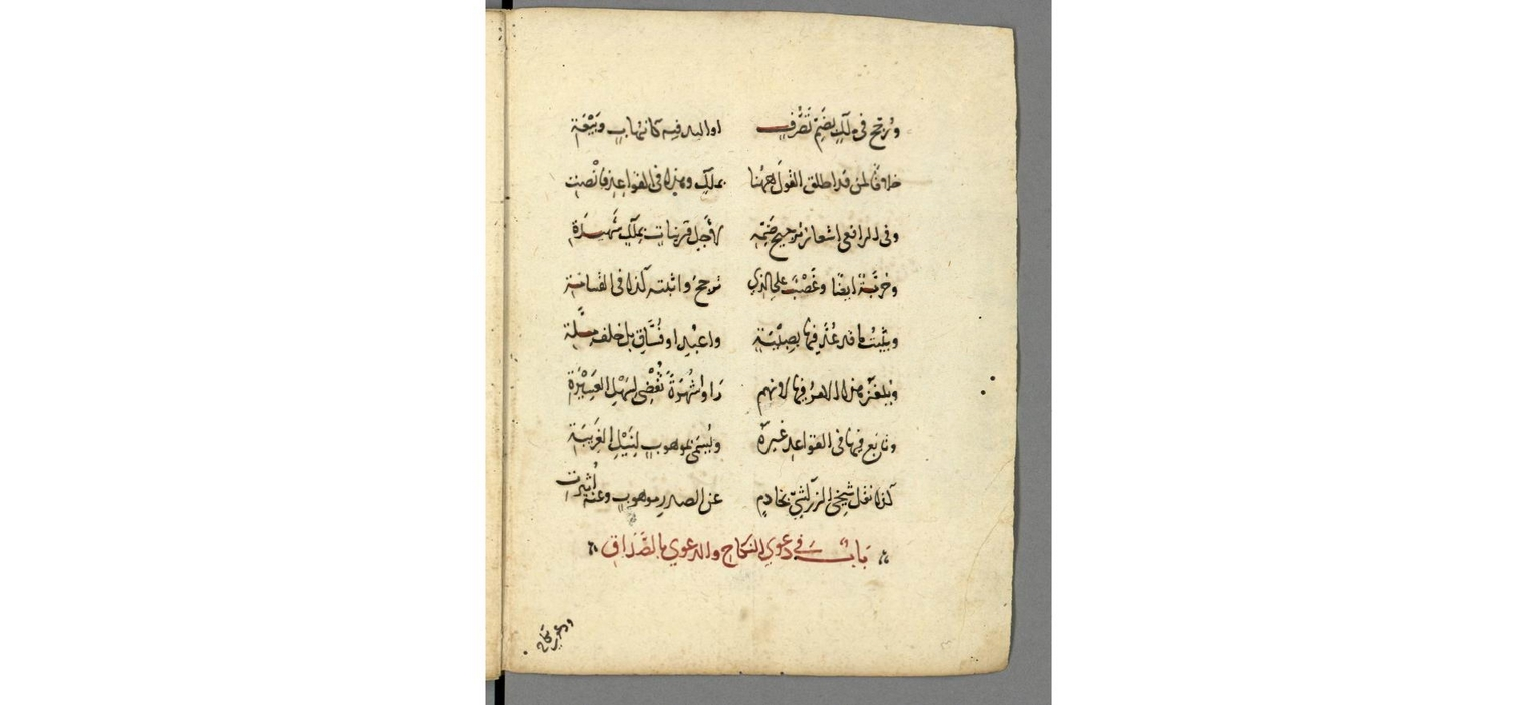 وترجح في ملك بضم تصرف او اليد فيه كانهاب وبيعة
خلافا لمن قد اطلق القول ههنا بملك وهذا في القواعد فانصت
وفي الرافعي اشعار ترجيح ضمه لأجل قرينات بملك شهيدة
وخربة ايضا وغصب على الذي ترجح واثبته كذا في القسامة
ويثبت ما قد عد فيها بصبية واعبد او فساق بل خلف ملة
ويلغز هذا الامر فيها لانهم راوا شهرة تفضي لسهل العسيرة
ونازع فيها في القواعد غيره ويسمى بموهوب لنيل الغريبة
كذا نقل شيخي الزركشي بخادم عن الصدر موهوب وعنه اثيرت
باب في دعوى النكاح والدعوى بالصداق
ودعوى نكاح